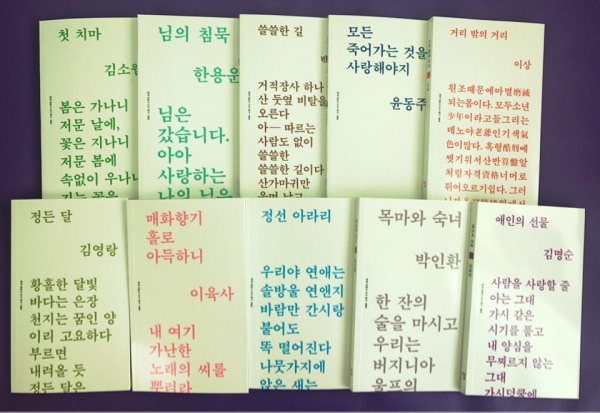 첫 치마
김소월
봄은 가나니
저문 날에,
꽃은 지나니
저문 봄에
속없이 우나니
지는 꽃을
님의 침묵
한용운
님은
갔습니다.
아아
사랑하는
나의 님은
쓸쓸한 길
거적장사 하나
산 뒷옆 비탈을
오른다
아— 따르는
사람도 없이
쓸쓸한
쓸쓸한 길이다
산가마귀만
울며 날고
모든
죽어가는 것을
사랑해야지
윤동주
거리 밖의 거리
이상
원조때문에마멸磨滅
되는몸이다. 모두소년
少年이라고들그리는
데노야老爺인기색氣
色이많다. 혹형酷刑에
씻기워서산반算盤알
처럼자격資格너머로
튀어오르기쉽다. 그러
정든 달
김영랑
황홀한 달빛
바다는 은장
천지는 꿈인 양
이리 고요하다
부르면
내려올 듯
정든 달은
매화향기
홀로
아득하니
이육사
내 여기
가난한
노래의 씨를
뿌려라
정선 아라리
우리야 연애는
솔방울 연앤지
바람만 간시랑
불어도
똑 떨어진다
나뭇가지에
앉은 새는
목마와 숙녀
박인환
한 잔의
술을 마시고
우리는
버지니아
울프의
애인의 선물
김명순
사람을 사랑할 줄
아는 그대
가시 같은
시기를 품고
내 양심을
무찌르지 않는
그대
가시덩쿨에